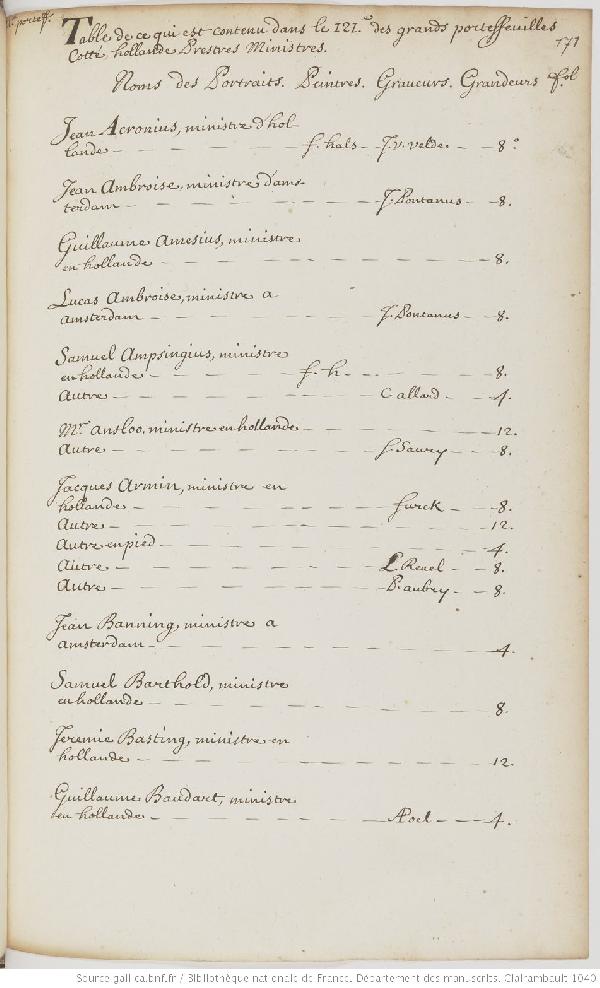 Table de ce qui est contenu dans le 121.e des grands porteffeuilles
Cotté hollande Prestres Ministres.
171
Noms des Portraits. Peintres. Graveurs. Grandeurs fol
Jean Acronius, ministre d'hol-
lande — f. hals — J. v. velde — 8.o
Jean Ambroise, ministre d'ams-
terdam — J. Pontanus — 8.
Guillaume Amesius, ministre
en hollande — 8.
Lucas Ambroise, ministre a
amsterdam — J. Pontanus — 8.
Samuel Ampsingius, ministre
en hollande — f. h — 8.
Autre — C allard — 4.
Mr. Ansloo, ministre en hollande — 12.
Autre — f. Saury — 8.
Jacques Armin, ministre en
hollande — furck — 8.
Autre — 12.
Autre en pied — 4.
Autre — L. Revel — 8.
Autre — P. aubry — 8.
Jean Banning, ministre a
amsterdam — 4.
Samuel Barthold, ministre
en hollande — 8.
Jeremie Basting, ministre en
hollande — 12.
Guillaume Baudart, ministre
en hollande — 4.
Source gallica.bnf.fr / Bibliothèque nationale de France. Département des manuscrits. Clairambault 1040